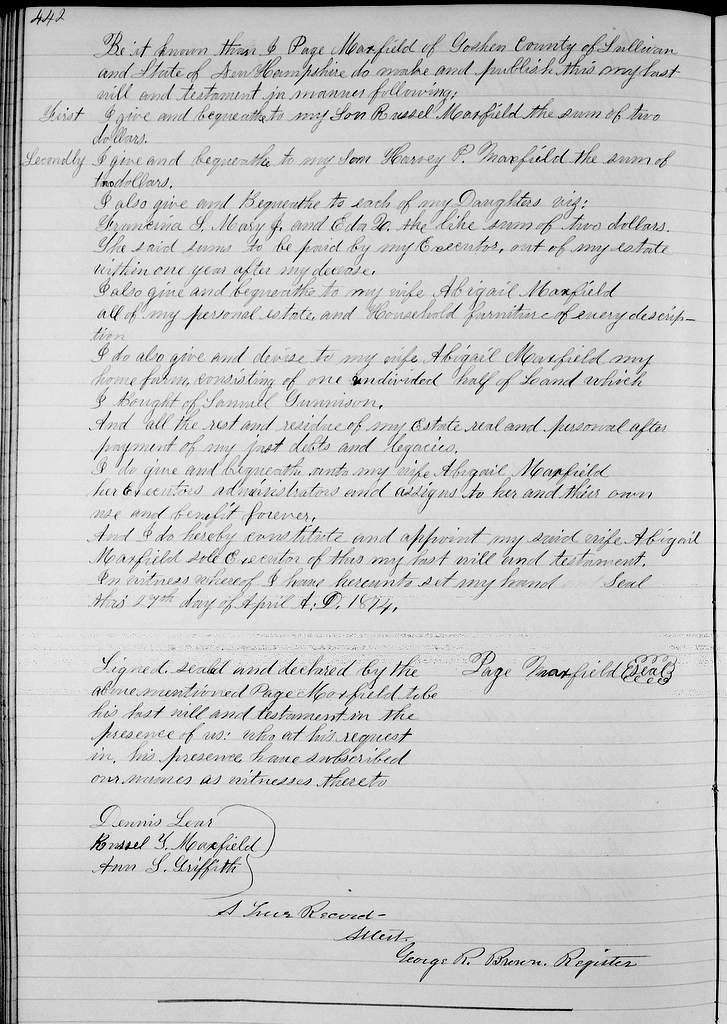 442
Be it known that I Page Maxfield of Goshen County of Sullivan
and State of New Hampshire do make and publish this my last
will and testament in manner following;
First I give and bequeathe to my Son Russel Maxfield the sum of two
dollars.
Secondly I give and bequeathe to my Son Harvey P. Maxfield the sum of
two dollars.
I also give and Bequeathe to each of my Daughters viz:
Francina S. Mary J. and Eda the like sum of two dollars.
The said sums to be paid by my Executor, out of my estate
within one year after my decease.
I also give and bequeathe to my wife Abigail Maxfield
all of my personal estate and Household furniture of every descrip-
tion
I do also give and devise to my wife Abigail Maxfield my
home farm, consisting of one undivided half of Land which
I bought of Samuel Gunnison.
And all the rest and residue of my Estate real and personal after
payment of my just debts and legacies.
I do give and bequeathe unto my wife Abigail Maxfield
her Executors administrators and assigns to her and their own
use and benefit forever.
And I do hereby constitute and appoint my said wife Abigail
Maxfield sole Executor of this my last will and testament.
In witness whereof I have hereunto set my hand and Seal
this 27th day of April A.D. 1874.
Signed sealed and declared by the Page Maxfield Seal
above mentioned Page Maxfield to be
his last will and testament in the
presence of us: who at his request
in his presence have subscribed
our names as witnesses thereto
Dennis Lear
Russel Y. Maxfield
Ann S. Griffith
A True Record-
Attest.
George R. Brown. Register